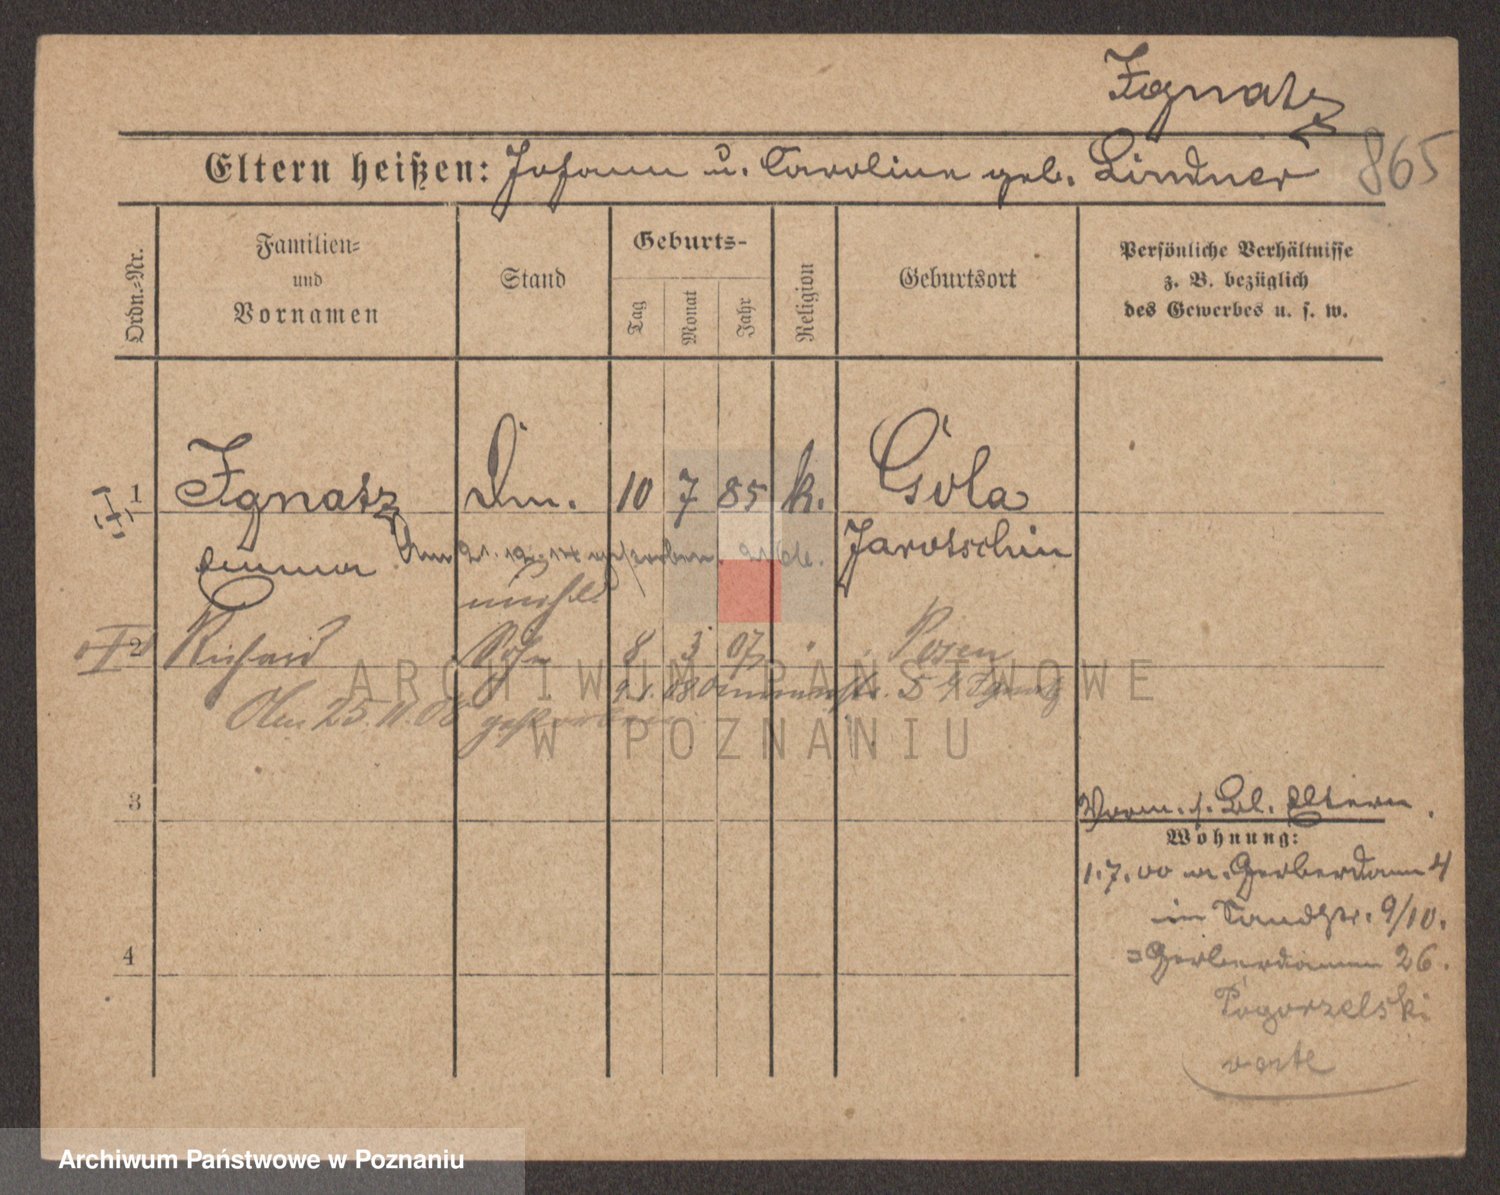 Ignatz
Eltern heißen: Johann u. Caroline geb. Lindner
865
Ordn.-Nr.
Familien- und Vornamen
Stand
Geburts-
Tag
Monat
Jahr
Religion
Geburtsort
Persönliche Verhältnisse
z. B. bezüglich
des Gewerbes u. s. w.
1 Ignatz Dm. 10 7 85 k. Gola
Emma Am gestorben Jarotschin
unehel
2 Richard Sohn 8 3 07 Posen
25. 11. 08 gestorben
ARCHIWUM PAŃSTWOWE
W POZNANIU
3
Vorm. s. Bl. Eltern.
Wohnung:
1.7.00 Gerberdamm 4
Sandstr. 9/10.
4
= Gerberdamm 26.
Pogorzelski
Archiwum Państwowe w Poznaniu